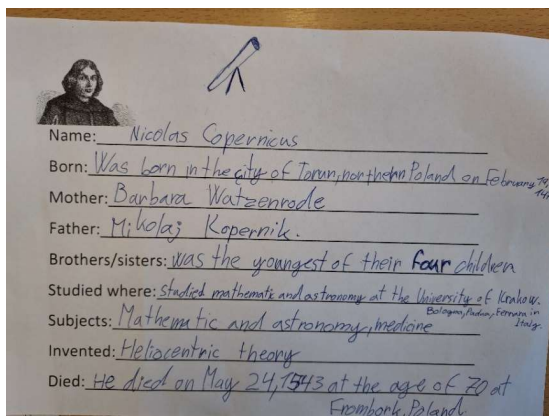 Name: Nicolas Copernicus
Born: Was born in the city of Torun, northern Poland on February 19,
Mother: Barbara Watzenrode
Father: Mikolaj Kopernik.
Brothers/sisters: was the youngest of their four children
Studied where: Studied mathematic and astronomy at the University of Krakow.
Bologna, Padua, Ferrara in
Italy.
Subjects: Mathematic and astronomy, medicine
Invented: Heliocentric theory
Died: He died on May 24, 1543 at the age of 70 at
Frombork, Poland